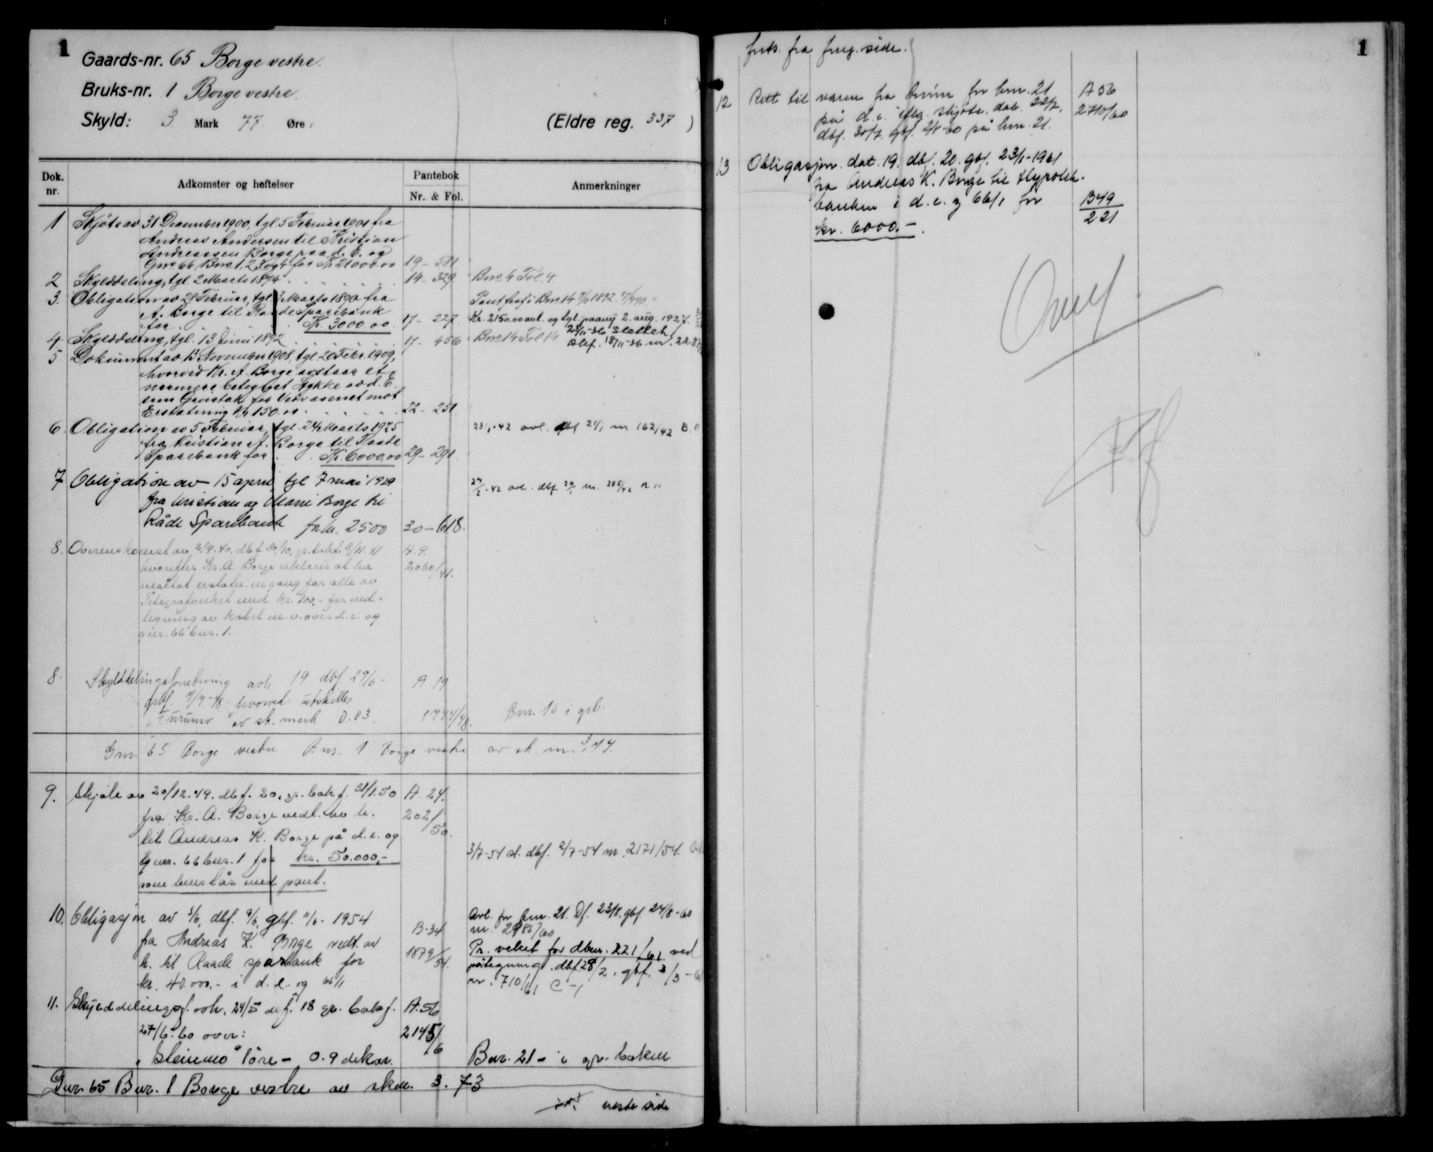 1
Gaards-nr. 65 Borge vestre.
Bruks-nr. 1 Borge vestre.
Skyld: 3 Mark 77 Øre.
(Eldre reg. 337)
Dok. nr.
Adkomster og heftelser
Pantebok
Nr. & Fol.
Anmerkninger
1 Skjøte av 31 December 1900, tgl. 5 Februar 1901 fra
Andreas Andersen til Kristian
Andreassen Borge paa d. E. og
Gnr 66, Bnr 1, 2 og 4 for Kr 21000.00 19 - 581
2 Skylddeling, tgl 2 Marts 18 14 - 329 Bnr. 4 Fol. 4
3. Obligation av 28 Februar, tgl Marts 18 fra
A. Borge til Raade Sparebank
for Kr 3000.00 17 - 227
Pantefrafi Bnr 14 1892
Kr. 2150.00 avl. og tgl. paany 2. aug. 1927.
slettet
4 Skylddeling, tgl. 13 Juni 1892 17 - 456 Bnr 14 Fol 14
5 Dokument av 13 November 1908, tgl 20 Febr. 1909,
hvorved Kr. A. Borge avstaar et
nærmere betegnet Stykke av d. E.
som Grustak for Veivæsenet mot
Erstatning Kr 150.00 22 - 251
6. Obligation av 5 Februar, tgl. 24 Marts 1925
fra Kristian A. Borge til Raade
Sparebank for Kr. 6000,00 29 - 291
42 avl. dbf 24/1 nr 162/42 B. 11
7 Obligation av 15 april tgl 7 mai 1929
fra Kristian og Marie Borge til
Råde Sparebank for kr. 2500 30 - 618
42 avl. dbf. nr.
8. Overenskomst av 2/9.40, dbf. 30/10, gr. bokf. 3/11.41 A. 9.
hvoretter Kr. A. Borge erklærer at ha
mottat erstatn. engang for alle av
Telegrafverket med kr. 100,- for ned-
legning av kabel m.v. over d. e. og
gnr. 66 bnr. 1.
2060/41.
8. Skylddelingsforretning avh. 19. dbf 29/6 - A 19
hvorved utskilles
"Furumo" av sk. mark 0.03. Bnr. 16 i grb.
Gnr. 65 Borge vestre Bnr. 1 Borge vestre av sk. m. 3,74
9. Skjøte av 20/12.49. dbf. 20, gr. bokf. 31/1.50 A 24.
fra Kr. A. Borge vedt. av h. 202/50.
til Andreas K. Borge på d. e. og
gnr. 66 bnr. 1 for kr. 50.000,-
som benstår med pant.
3/7-54 sl. dbf. 2/7-54 nr. 2171/54.
10. Obligasjon av 3/6, dbf. 9/6, gbf. 11/6 - 1954
fra Andreas K. Borge vedt. av B-34
h. til Raade sparebank for 1879/54.
kr. 40 000,- i d. e. og 66/1
Avl. for bnr. 21. Df. 23/8, gbf. 24/8-60
nr. 2985/60
Pr. veket for dbnr. 221/61 ved
påtegning, dbf 28/2, gbf. 3/3 - 61
nr. 710/61
11. Skylddelingsf. avh. 24/5 dbf. 18 gr. bokf. A. 56
27/6-60 over: 2145/6
"Steinmo" 1 øre - 0.9 dekar. Bnr. 21 - i gr. boken
Gnr. 65 Bnr. 1 Borge vestre av skm. 3. 73
neste side
1
forts. fra forrg. side.
12 Rett til vann fra brønn for bnr. 21 A 56
på d. e. iflg. skjøte, dat. 22/7, 2710/60
dbf. 30/7, gbf. 2/8-60 på bnr. 21.
13 Obligasjon dat. 19. dbf. 20. gbf. 23/1-1961
fra Andreas K. Borge til Hypotek-
banken i d. e. og 66/1 for B49
kr. 6000.-. 221